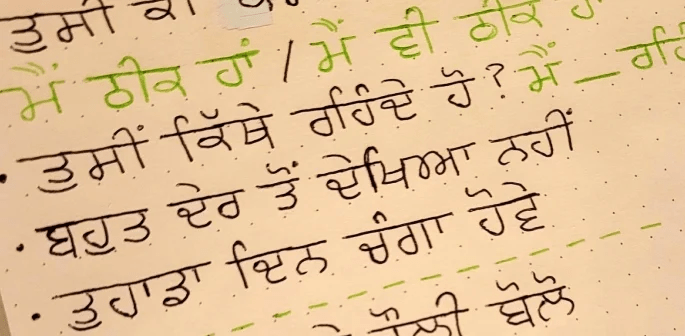 ਤੁਸੀਂ ਕੀ
ਮੈਂ ਠੀਕ ਹਾਂ / ਮੈਂ ਵੀ ਠੀਕ
• ਤੁਸੀਂ ਕਿੱਥੇ ਰਹਿੰਦੇ ਹੋ? ਮੈਂ _
• ਬਹੁਤ ਦੇਰ ਤੋਂ ਦੇਖਿਆ ਨਹੀਂ
• ਤੁਹਾਡਾ ਦਿਨ ਚੰਗਾ ਹੋਵੇ
ਹੌਲੀ ਬੋਲੋ